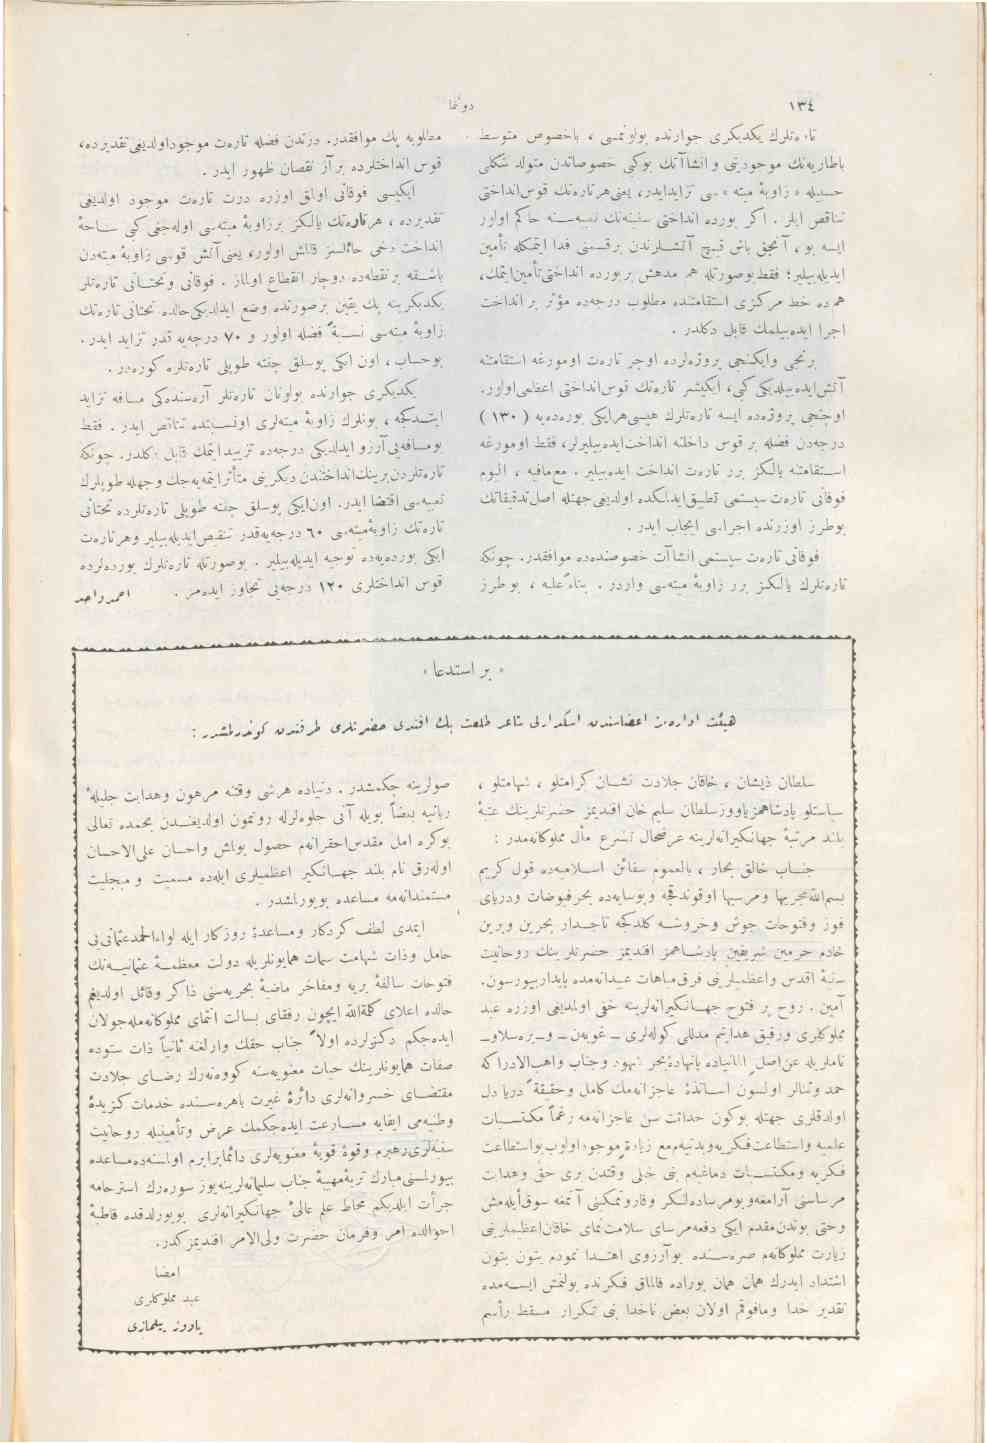 ١٣٤
دونما
تارەتلرك يكديكرى جوارنده بولونمسى ، باخصوص متوسط
باطاريه‌نك موجوديتى و انشاآتك بوكبى خصوصاتدن متولد شكلى
حسبيله « زاويۀ ميته » سى تزايدايدر، يعنى هر تارەتك قوس‌انداختى
تناقص ايلر . اكر بورده انداختى سفينه‌نك نسبه‌سنه حاكم اولور
ايسه بو ، آنجق باش قيچ آتشلرندن برقسمنى فدا ايتمكله تأمين
ايديله‌بيلير؛ فقط بوصورتله هم مدهش بر بورده انداختى تأمين‌ايتمك،
هم ده خط مركزى استقامتنده مطلوب درجه‌ده مؤثر بر انداخت
اجرا ايده‌بيلمك قابل دكلدر .
برنجى وايكنجى پروژه‌لرده اوچر تارەت اوموررغه استقامتنه
آتش‌ايده‌بيلديكى كبى، ايكيشر تارەتك قوس‌انداختى اعظمى‌اولور.
اوچنجى پروژه‌ده ايسه تارەتلرك هپسى‌هرايكى بورده‌يه ( ١٣٠ )
درجه‌دن فضله بر قوس داخلنه انداخت‌ايده‌بيليرلر، فقط اومورغه
استقامتنه يالكز برر تارەت انداخت ايده‌بيلير . مع‌مافيه ، اليوم
فوقانى تارەت سيستمى تطبيق‌ايدلمكده اولديغى جهتله اصل‌تدقيقاتك
بوطرز اوزرنده اجراسى ايجاب ايدر .
فوقانى تارەت سيستمى انشاآت خصوصنده‌ده موافقدر. چونكه
تارەتلرك يالكز برر زاويۀ ميته‌سى واردر . بناءً عليه ، بو طرز
مطلوبه پك موافقدر. درتدن فضله تارەت موجوداولديغى‌تقديرده،
قوس انداختلرده برآز نقصان ظهور ايدر .
ايكيسى فوقانى اولمق اوزره درت تارەت موجود اولديغى
تقديرده ، هر تارەتك يالكز برزاويۀ ميته‌سى اوله‌جغى كبى ساحۀ
انداخت دخى حائلسز قالمش اولور، يعنى‌آتش قوسى زاويۀ ميته‌دن
باشقه بر نقطه‌ده دوچار انقطاع اولماز . فوقانى وتحتانى تارەتلر
يكديكرينه پك يقين برصورتده وضع ايدلديكى‌حالده تحتانى تارەتك
زاويۀ ميته‌سى نسبةً فضله اولور و ٧٠ درجه‌يه قدر تزايد ايدر .
بوحساب ، اون ايكى پوسلق چفته طوپلى تارەتلره كوره‌در .
يكديكرى جوارنده بولونان تارەتلر آره‌سنده‌كى مسافه تزايد
ايتدكجه ، بونلرك زاويۀ ميته‌لرى اونسبتده تناقص ايدر . فقط
بومسافه‌يى آرزو ايدلديكى درجه‌ده تزييد ايتمك قابل دكلدر. چونكه
تارەتلردن برينك‌انداختندن ديكرينى متأثرايتميه‌جك وجهله طوپلرك
تعبيه‌سى اقتضا ايدر. اون‌ايكى پوسلق چفته طوپلى تارەتلرده تحتانى
تارەتك زاويۀميته‌سى ٦٠ درجه‌يه‌قدر تنقيص‌ايديله‌بيلير وهر تارەت
ايكى بورده‌يه‌ده توجيه ايديله‌بيلير . بوصورتله تارەتلرك بورده‌لرده
قوس انداختلرى ١٢٠ درجه‌يى تجاوز ايده‌مز .
احمد واحد
« بر استدعا »
هيئت ادارەمز اعضاسندن اسكدارلى شاعر طلعت بك افندى حضرتلرى طرفندن كوندرلمشدر :
سلطان ذيشان ، خاقان جلادت نشان كرامتلو ، شهامتلو ،
سياستلو پادشاهمز ياووزسلطان سليم خان افنديمز حضرتلرينك عتبۀ
بلند مرتبۀ جهانكيرانه‌لرينه عرضحال تضرع مآل مملوكانه‌مدر :
جناب خالق بحار ، بالعموم سفائن اسلاميه‌ده قول كريم
بسم‌الله‌مجريها ومرسيها اوقوندقجه وبوسايه‌ده بحرفيوضات ودرياى
فوز وفتوحات جوش وخروشه كلدكجه تاجدار بحرين وبرين
خادم حرمين شريفين پادشاهمز افنديمز حضرتلرينك روحانيت
سنيۀ اقدس واعظميلرينى فرق مباهات عبدانه‌مده پايداربيورسون.
آمين . روح پر فتوح جهانكيرانه‌لرينه خفى اولمديغى اوزره عبد
مملوكلرى ورفيق هدايتم مدللى كوله‌لرى ـ غوبه‌ن ـ و ـ بره‌سلاو ـ
ناملريله عن‌اصل آلمانياده پانهادۀ بحر شهود وجناب واهب‌الادراكه
حمد وثنالر اولسون اساتذۀ عاجزانه‌مك كامل وحقيقةً دريا دل
اولدقلرى جهتله بوكون حداثت سن عاجزانه‌مه رغماً مكتسبات
علميه واستطاعت فكريه‌وبدنيه‌م‌مع زيادةٍ موجوداولوب بواستطاعت
فكريه ومكتسبات دماغيه‌م بنى خيلى وقتدن برى حق وهدايت
مرساسنى آرامغه‌وبومرساده‌لنكر وقارو‌تمكينى آتمغه سوق‌ايله‌مش
وحتى بوندن‌مقدم ايكى دفعه‌مرساى سلامت‌نماى خاقان‌اعظميلرينى
زيارت مملوكانه‌م صره‌سنده بوآرزوى اهتدا نموده‌م بتون بتون
اشتداد ايدرك همان همان بوراده قالمق فكرنده بولنمش ايسه‌مده
تقدير خدا ومافوقم اولان بعض ناخدا بنى تكرار مسقط رأسم
صولرينه چكمشدر . دنياده هرشى وقتنه مرهون وهدايت جليلۀ
ربانيه بعضاً بويله آنى جلوه‌لرله رونمون اولديغندن بحمده تعالى
بوكره امل مقدس‌احقرانه‌م حصول بولمش واحسان على‌الاحسان
اوله‌رق نام بلند جهانكير اعظميلرى ايله‌ده مسميت و مبجليت
مستمندانه‌مه مساعده بويورلمشدر .
ايمدى لطف كردكار ومساعدۀ روزكار ايله لواءالحمدعثمانى‌يى
حامل وذات شهامت سمات همايونلريله دولت معظمۀ عثمانيه‌نك
فتوحات سالفۀ بريه ومفاخر ماضيۀ بحريه‌سنى ذاكر وقائل اولديغم
حالده اعلاى كلمةالله ايچون رفقاى بسالت انتماى مملوكانه‌مله‌جولان
ايده‌جكم دكزلرده اولاً جناب حقك وارلغنه ثانياً ذات ستوده
صفات همايونلرينك حيات معنويه‌سنه كووه‌نه‌رك رضاى جلادت
مقتضاى خسروانه‌لرى دائرۀ غيرت باهره‌سنده خدمات كزيدۀ
وطنيه‌مى ايفايه مسارعت ايده‌جكمك عرض وتأمينيله روحانيت
سنيه‌لرى‌رهبرم وقوۀ قويۀ معنويه‌لرى دائمابرابرم اولسنه‌ده‌مساعده
بيورلسنى‌مبارك تربۀ‌مهيبۀ جناب سليمانه‌لرينه‌يوز سوره‌رك استرحامه
جرأت ايلديكم محاط علم عالئ جهانكيرانه‌لرى بويورلدقده قاطبۀ
احوالده امر وفرمان حضرت ولى‌الامر افنديمزكدر.
امضا
عبد مملوكلرى
ياووز ييلمازى